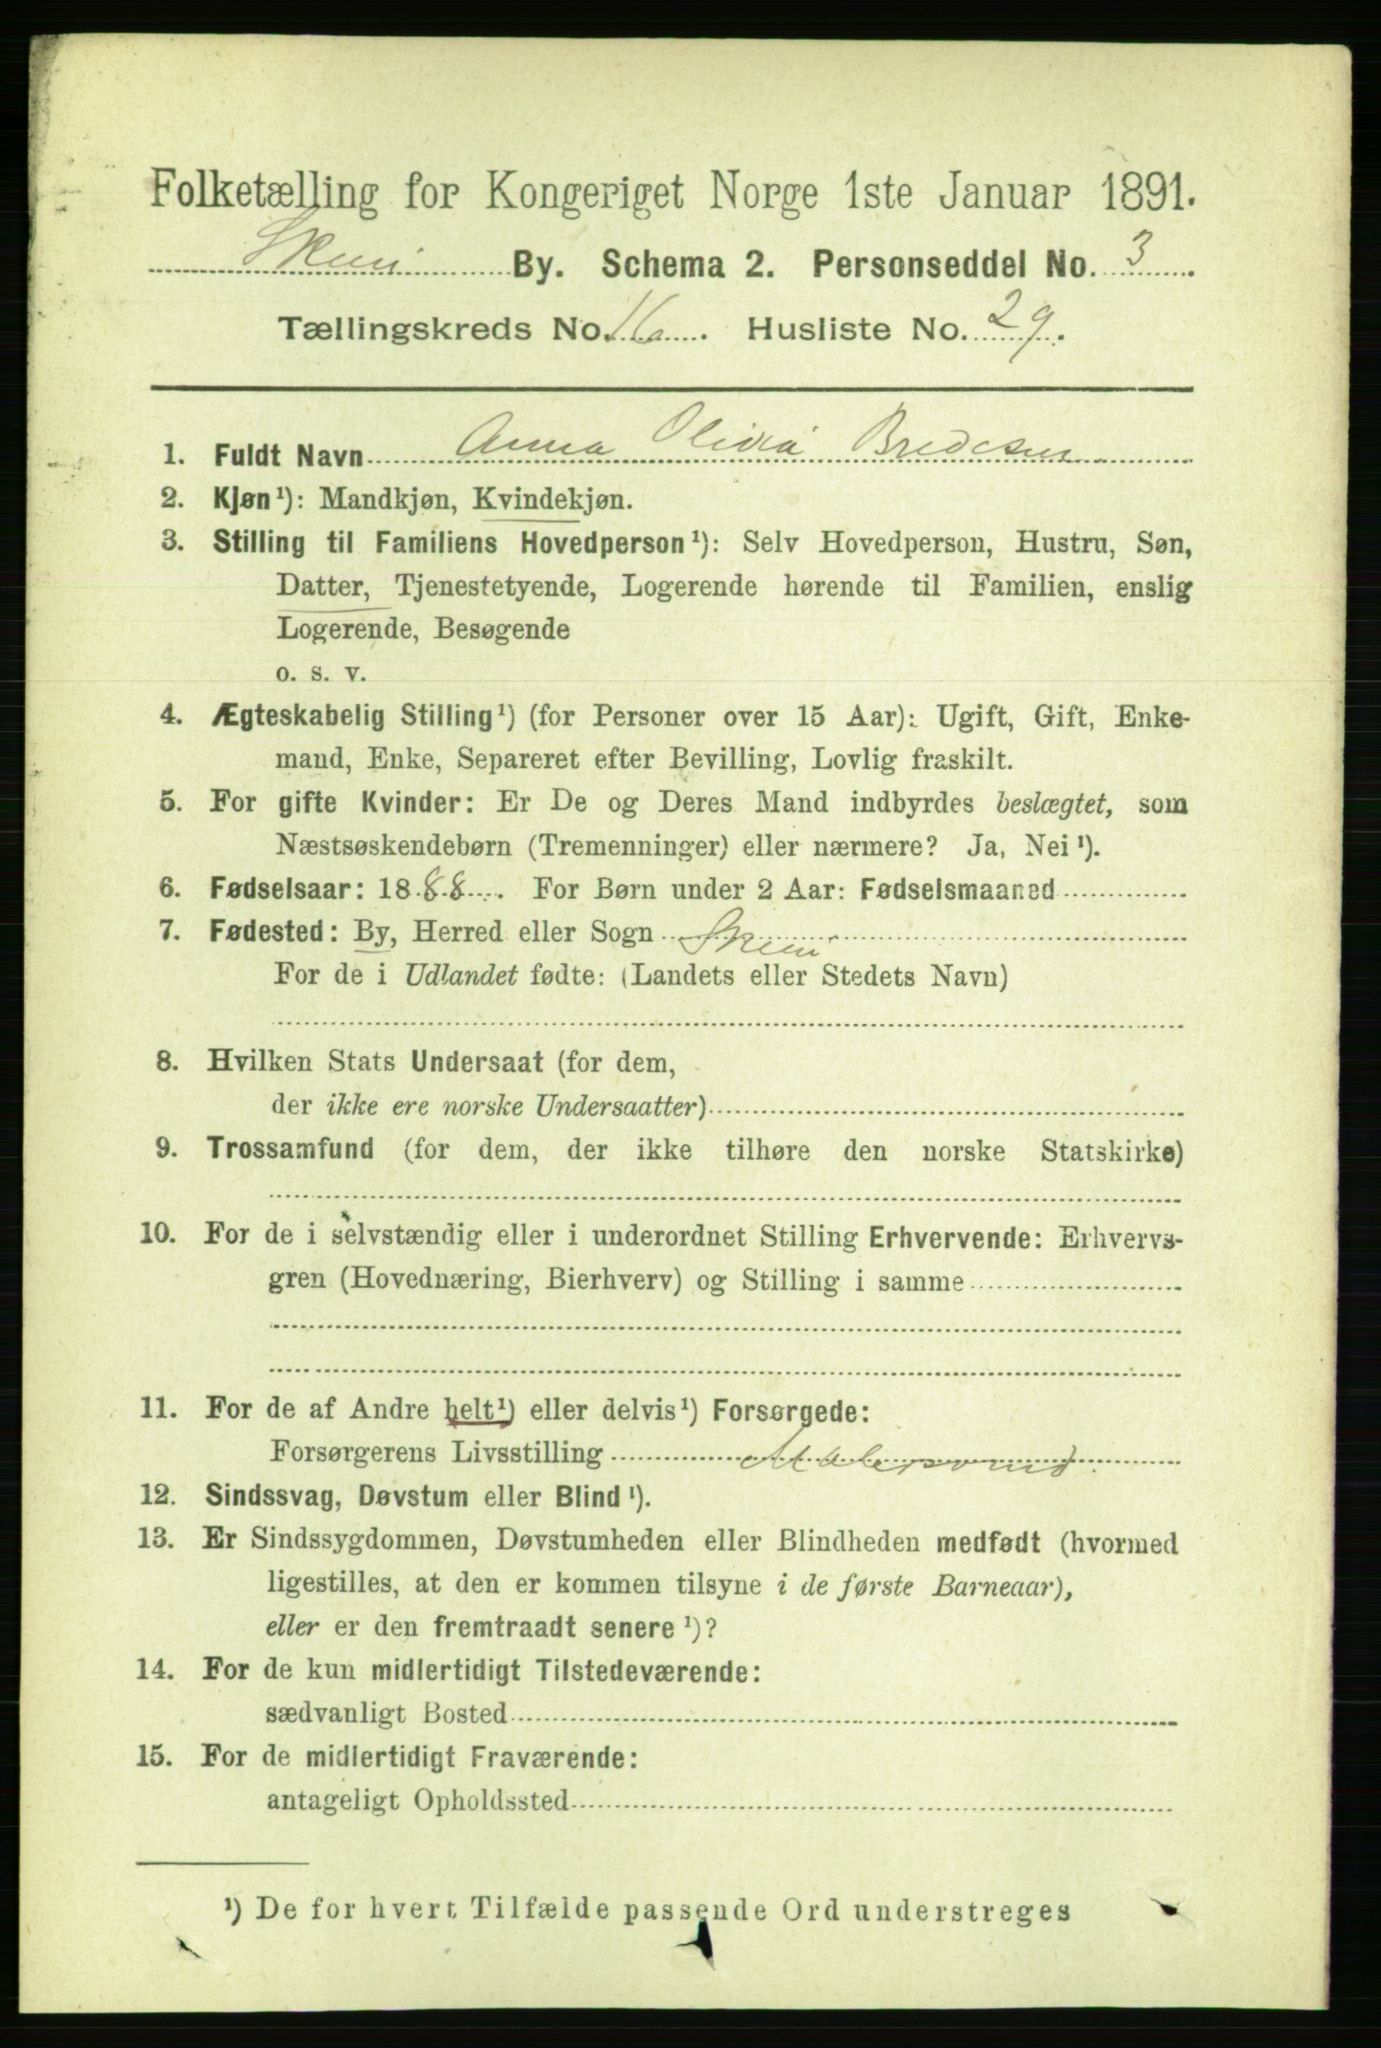 Folketælling for Kongeriget Norge 1ste Januar 1891.
Skien By. Schema 2. Personseddel No. 3
Tællingskreds No. 16. Husliste No. 29.
1. Fuldt Navn Anna Olivia Bredesen
2. Kjøn¹): Mandkjøn, Kvindekjøn.
3. Stilling til Familiens Hovedperson¹): Selv Hovedperson, Hustru, Søn,
Datter, Tjenestetyende, Logerende hørende til Familien, enslig
Logerende, Besøgende
o. s. v.
4. Ægteskabelig Stilling¹) (for Personer over 15 Aar): Ugift, Gift, Enke-
mand, Enke, Separeret efter Bevilling, Lovlig fraskilt.
5. For gifte Kvinder: Er De og Deres Mand indbyrdes beslægtet, som
Næstsøskendebørn (Tremenninger) eller nærmere? Ja, Nei¹).
6. Fødselsaar: 1888. For Børn under 2 Aar: Fødselsmaaned
7. Fødested: By, Herred eller Sogn Skien
For de i Udlandet fødte: (Landets eller Stedets Navn)
8. Hvilken Stats Undersaat (for dem,
der ikke ere norske Undersaatter)
9. Trossamfund (for dem, der ikke tilhøre den norske Statskirke)
10. For de i selvstændig eller i underordnet Stilling Erhvervende: Erhvervs-
gren (Hovednæring, Bierhverv) og Stilling i samme
11. For de af Andre helt¹) eller delvis¹) Forsørgede:
Forsørgerens Livsstilling
12. Sindssvag, Døvstum eller Blind¹).
13. Er Sindssygdommen, Døvstumheden eller Blindheden medfødt (hvormed
ligestilles, at den er kommen tilsyne i de første Barneaar),
eller er den fremtraadt senere¹)?
14. For de kun midlertidigt Tilstedeværende:
sædvanligt Bosted
15. For de midlertidigt Fraværende:
antageligt Opholdssted
¹) De for hvert Tilfælde passende Ord understreges